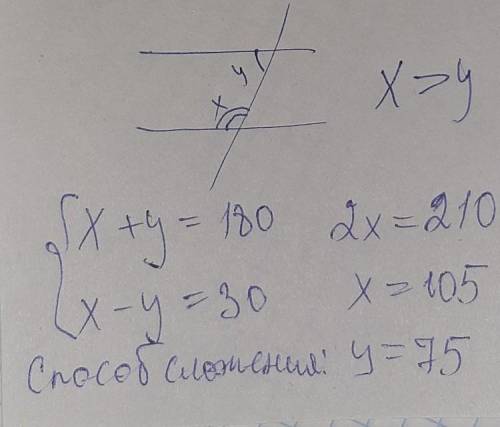 y
x
x > y
x + y = 180
2x = 210
x - y = 30
x = 105
Способ сложения: y = 75